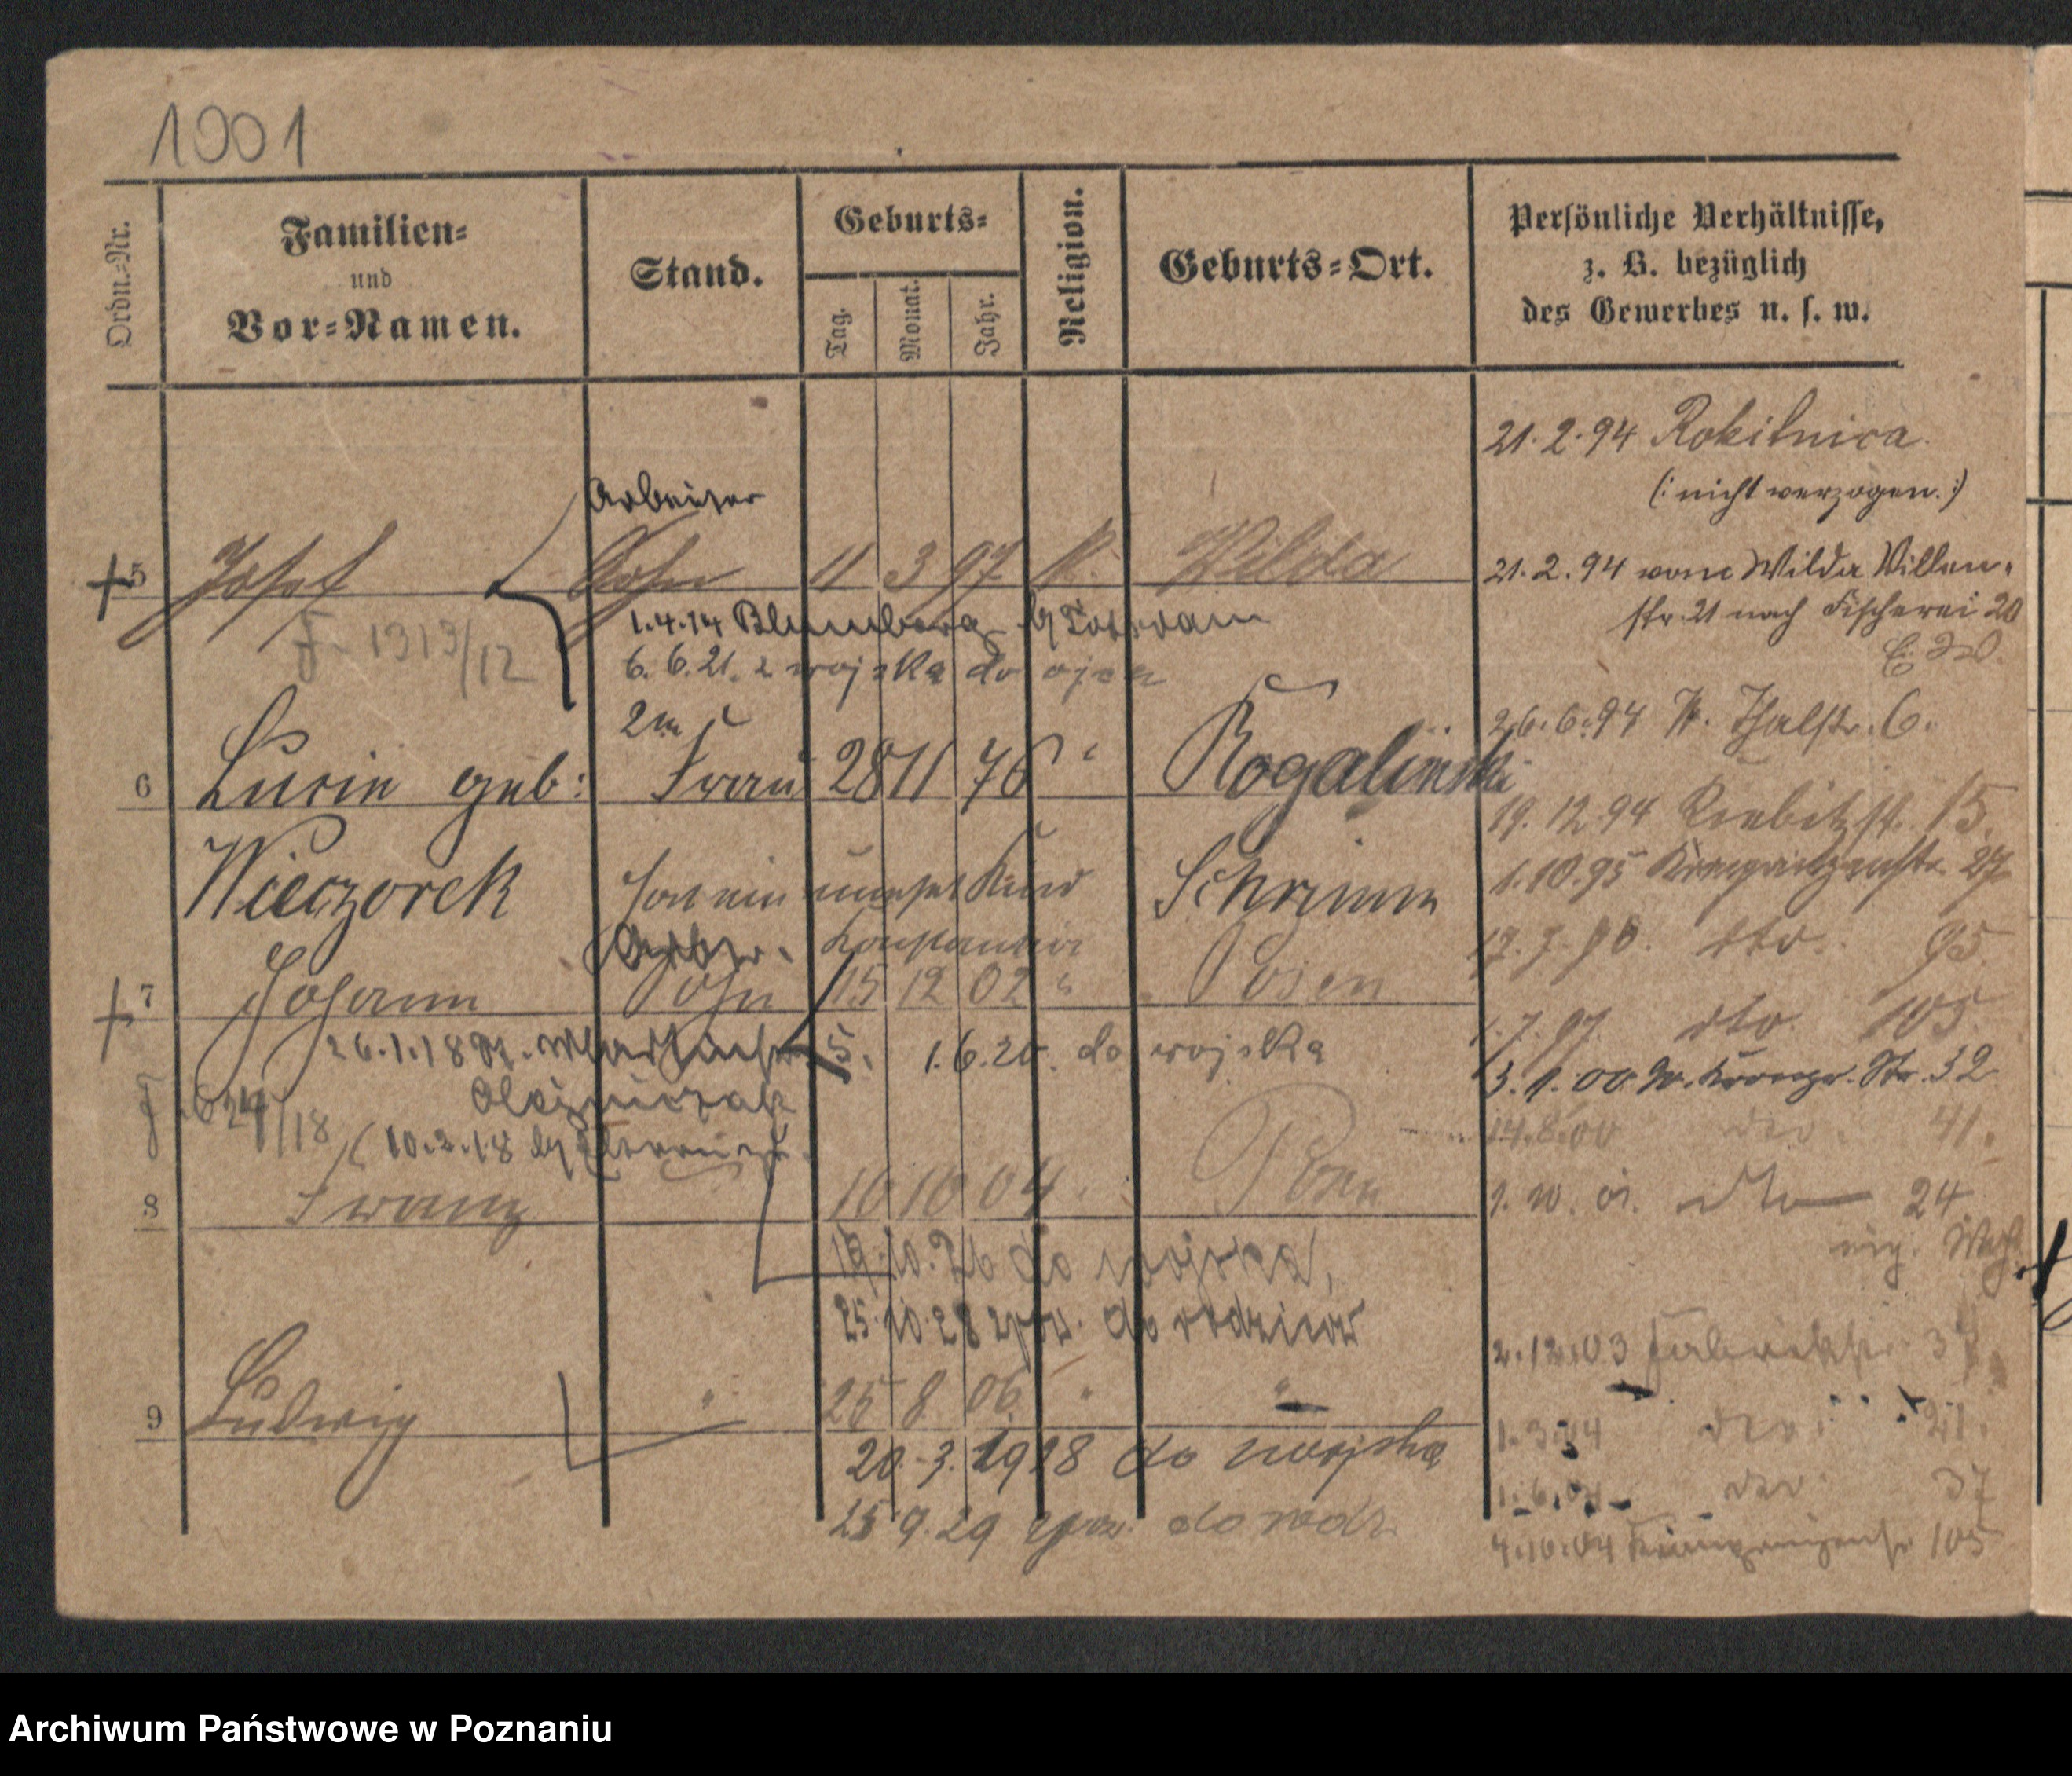 1001
Ordn.=Nr.
Familien=
und
Vor=Namen.
Stand.
Geburts=
Tag.
Monat.
Jahr.
Religion.
Geburts=Ort.
Persönliche Verhältnisse,
z. B. bezüglich
des Gewerbes u. s. w.
Arbeiter
5 Josef Sohn 11 3 97 k. Wilda
F. 1313/12
1.4.14 Blumberg b/
6.6.21. z wojska do ojca
6 Lucie geb: Frau 28 11 76 " Rogalinski
Wieczorek Hat ein Kind Schrimm
7 Johann Sohn 15 12 02 " Posen
26.1.18
1.6.20. do wojska
Olejniczak
10.2.18
8 Franz 10 10 04 Posen
19.10.26 do wojska,
25.10.28 zpow. do rodziców
9 Ludwig " 25 8 06 " "
20.3.1928 do wojska
25.9.29 zpow. do rodz.
21.2.94 Rokitnica
(: nicht verzogen. :)
21.2.94 von Wilda Villen-
str. 21 nach Fischerei 20
26.6.94 W. Thalstr. 6.
19.12.94 Kiebitzst. 15.
1.10.95 Kronprinzenstr. 27
dto. 95.
1.7.97. dto. 105.
3.1.00. W. Kronpr. Str. 32
14.8.00 dto. 41.
dto 24
2.12.03 Fabrikstr. 37
1.3.04 dto. 21.
1.6.04 dto. 37
4.10.04 Kronprinzenstr 105
Archiwum Państwowe w Poznaniu